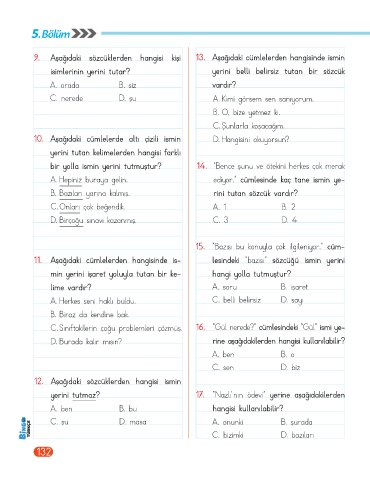 5.Bölüm
9. Aşağıdaki sözcüklerden hangisi kişi
isimlerinin yerini tutar?
A. orada B. siz
C. nerede D. şu
10. Aşağıdaki cümlelerde altı çizili ismin
yerini tutan kelimelerden hangisi farklı
bir yolla ismin yerini tutmuştur?
A. Hepiniz buraya gelin.
B. Bazıları yarına kalmış.
C. Onları çok beğendik.
D. Birçoğu sınavı kazanmış.
11. Aşağıdaki cümlelerden hangisinde is-
min yerini işaret yoluyla tutan bir ke-
lime vardır?
A. Herkes seni haklı buldu.
B. Biraz da kendine bak.
C. Sınıftakilerin çoğu problemleri çözmüş.
D. Burada kalır mısın?
12. Aşağıdaki sözcüklerden hangisi ismin
yerini tutmaz?
A. ben B. bu
C. şu D. masa
13. Aşağıdaki cümlelerden hangisinde ismin
yerini belli belirsiz tutan bir sözcük
vardır?
A. Kimi görsem sen sanıyorum.
B. O, bize yetmez ki.
C. Şunlarla koşacağım.
D. Hangisini okuyorsun?
14. "Bence şunu ve ötekini herkes çok merak
ediyor." cümlesinde kaç tane ismin ye-
rini tutan sözcük vardır?
A. 1 B. 2
C. 3 D. 4
15. "Bazısı bu konuyla çok ilgileniyor." cüm-
lesindeki "bazısı" sözcüğü ismin yerini
hangi yolla tutmuştur?
A. soru B. işaret
C. belli belirsiz D. sayı
16. "Gül nerede?" cümlesindeki "Gül" ismi ye-
rine aşağıdakilerden hangisi kullanılabilir?
A. ben B. o
C. sen D. biz
17. "Nazlı'nın ödevi" yerine aşağıdakilerden
hangisi kullanılabilir?
A. onunki B. şurada
C. bizimki D. bazıları
132